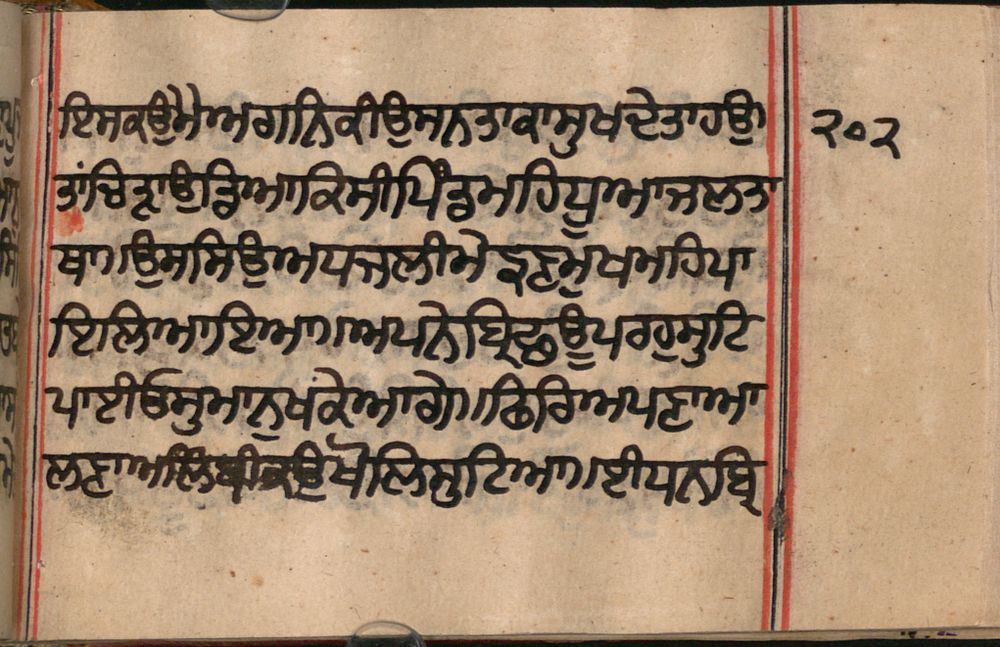 ਇਸਕਉਮੈਅਗਨਿਕੀਉਸਨਤਾਕਾਸੁਖਦੇਤਾਹਉ। ੨੦੨
ਤਾਂਚਿੜਾਉਡਿਆਕਿਸੀਪਿੰਡਮਹਿਧੂਆਜਲਤਾ
ਥਾ।ਉਸਸਿਉਅਧਜਲੀਸੇਇਣਮੁਖਮਹਿਪਾ
ਇਲਿਆਇਆ।ਅਪਨੇਬ੍ਰਿਛਊਪਰਹੁਸੁਟਿ
ਪਾਈਓਸੁਮਾਨੁਖਕੇਆਗੇ।ਫਿਰਿਅਪਣਾਆ
ਲਣਾਖੋਲਿਸੁਟਿਆ।ਈਧਨਬ੍ਰਿ